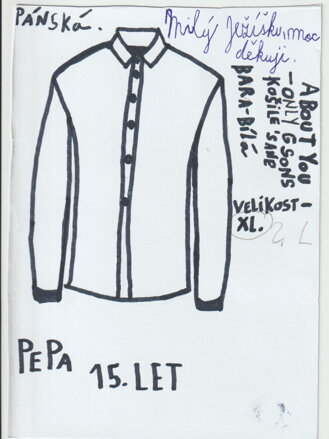 PÁNSKÁ.
Milý Ježíšku, moc
děkuji.
ABOUT YOU
-ONLY & SONS
KOŠILE 'SANE
BARA-BÍLÁ
VELIKOST-
XL.
L
PEPA
15. LET